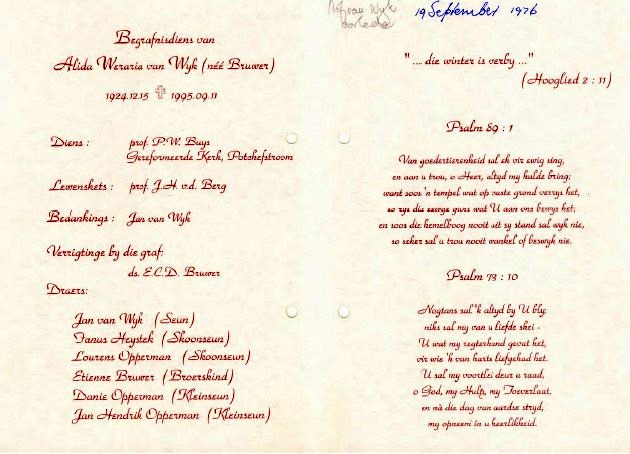 Begrafnisdiens van
Alida Weraria van Wyk (néé Bruwer)
1924.12.15 ✝ 1995.09.11
Diens : prof. P.W. Buys
Gereformeerde Kerk, Potchefstroom
Lewenskets : prof. J.H. v.d. Berg
Bedankings : Jan van Wyk
Verrigtinge by die graf:
ds. E.C.D. Bruwer
Draers:
Jan van Wyk (Seun)
Fanus Heystek (Skoonseun)
Lourens Opperman (Skoonseun)
Etienne Bruwer (Broerskind)
Danie Opperman (Kleinseun)
Jan Hendrik Opperman (Kleinseun)
van Wyk
oorlede
19 September 1976
" ... die winter is verby ..."
(Hooglied 2 : 11)
Psalm 89 : 1
Van goedertierenheid sal ek vir ewig sing,
en aan u trou, o Heer, altyd my hulde bring;
want soos 'n tempel wat op vaste grond verrys het,
so rys die eewge guns wat U aan ons bewys het;
en soos die hemelboog nooit uit sy stand sal wyk nie,
so seker sal u trou nooit wankel of beswyk nie.
Psalm 73 : 10
Nogtans sal 'k altyd by U bly;
niks sal my van u liefde skei -
U wat my regterhand gevat het,
vir wie 'k van harte liefgehad het.
U sal my voortlei deur u raad,
o God, my Hulp, my Toeverlaat,
en ná die dag van aardse stryd,
my opneem in u heerlikheid.